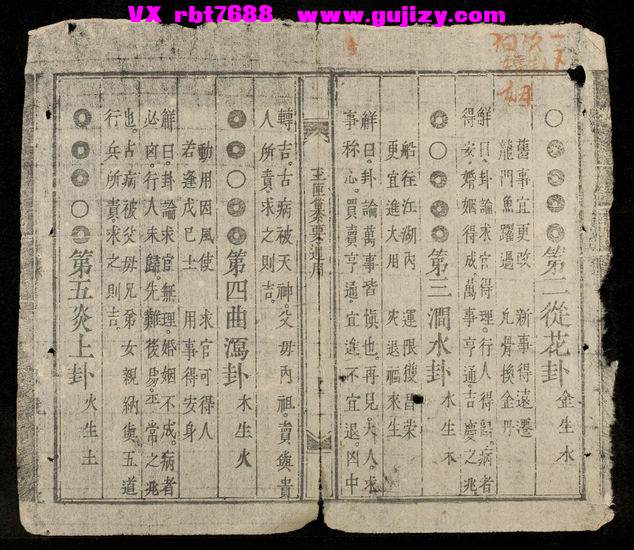 VX rbt7688 www.gujizy.com
第二從花卦 金生水
舊事宜更改 新事得遠遷
龍門魚躍過 凡骨換金丹
解曰卦論求官得理。行人得歸。病者
得安。婚姻得成。萬事亨通。吉慶之兆
第三澗水卦 水生木
船在江湖內 運限復昌榮
更宜進大用 災退福來生
解曰。卦論萬事皆愼也。再見大人。求
事稱心。買賣亨通。宜進不宜退。凶中
玉匣纂要通用
轉吉。占病被天神。父母內祖。責與貴
人所責。求之則吉。
第四曲瀉卦 木生火
動用因風使 求官可得人
若逢戊巳土 用事得安身
解曰。卦論求官無理。婚姻不成。病者
必凶。行人未歸。先難後易。平常之兆
也。占病被父母兄弟女親納與五道
行兵所責求之則吉。
第五炎上卦 火生土